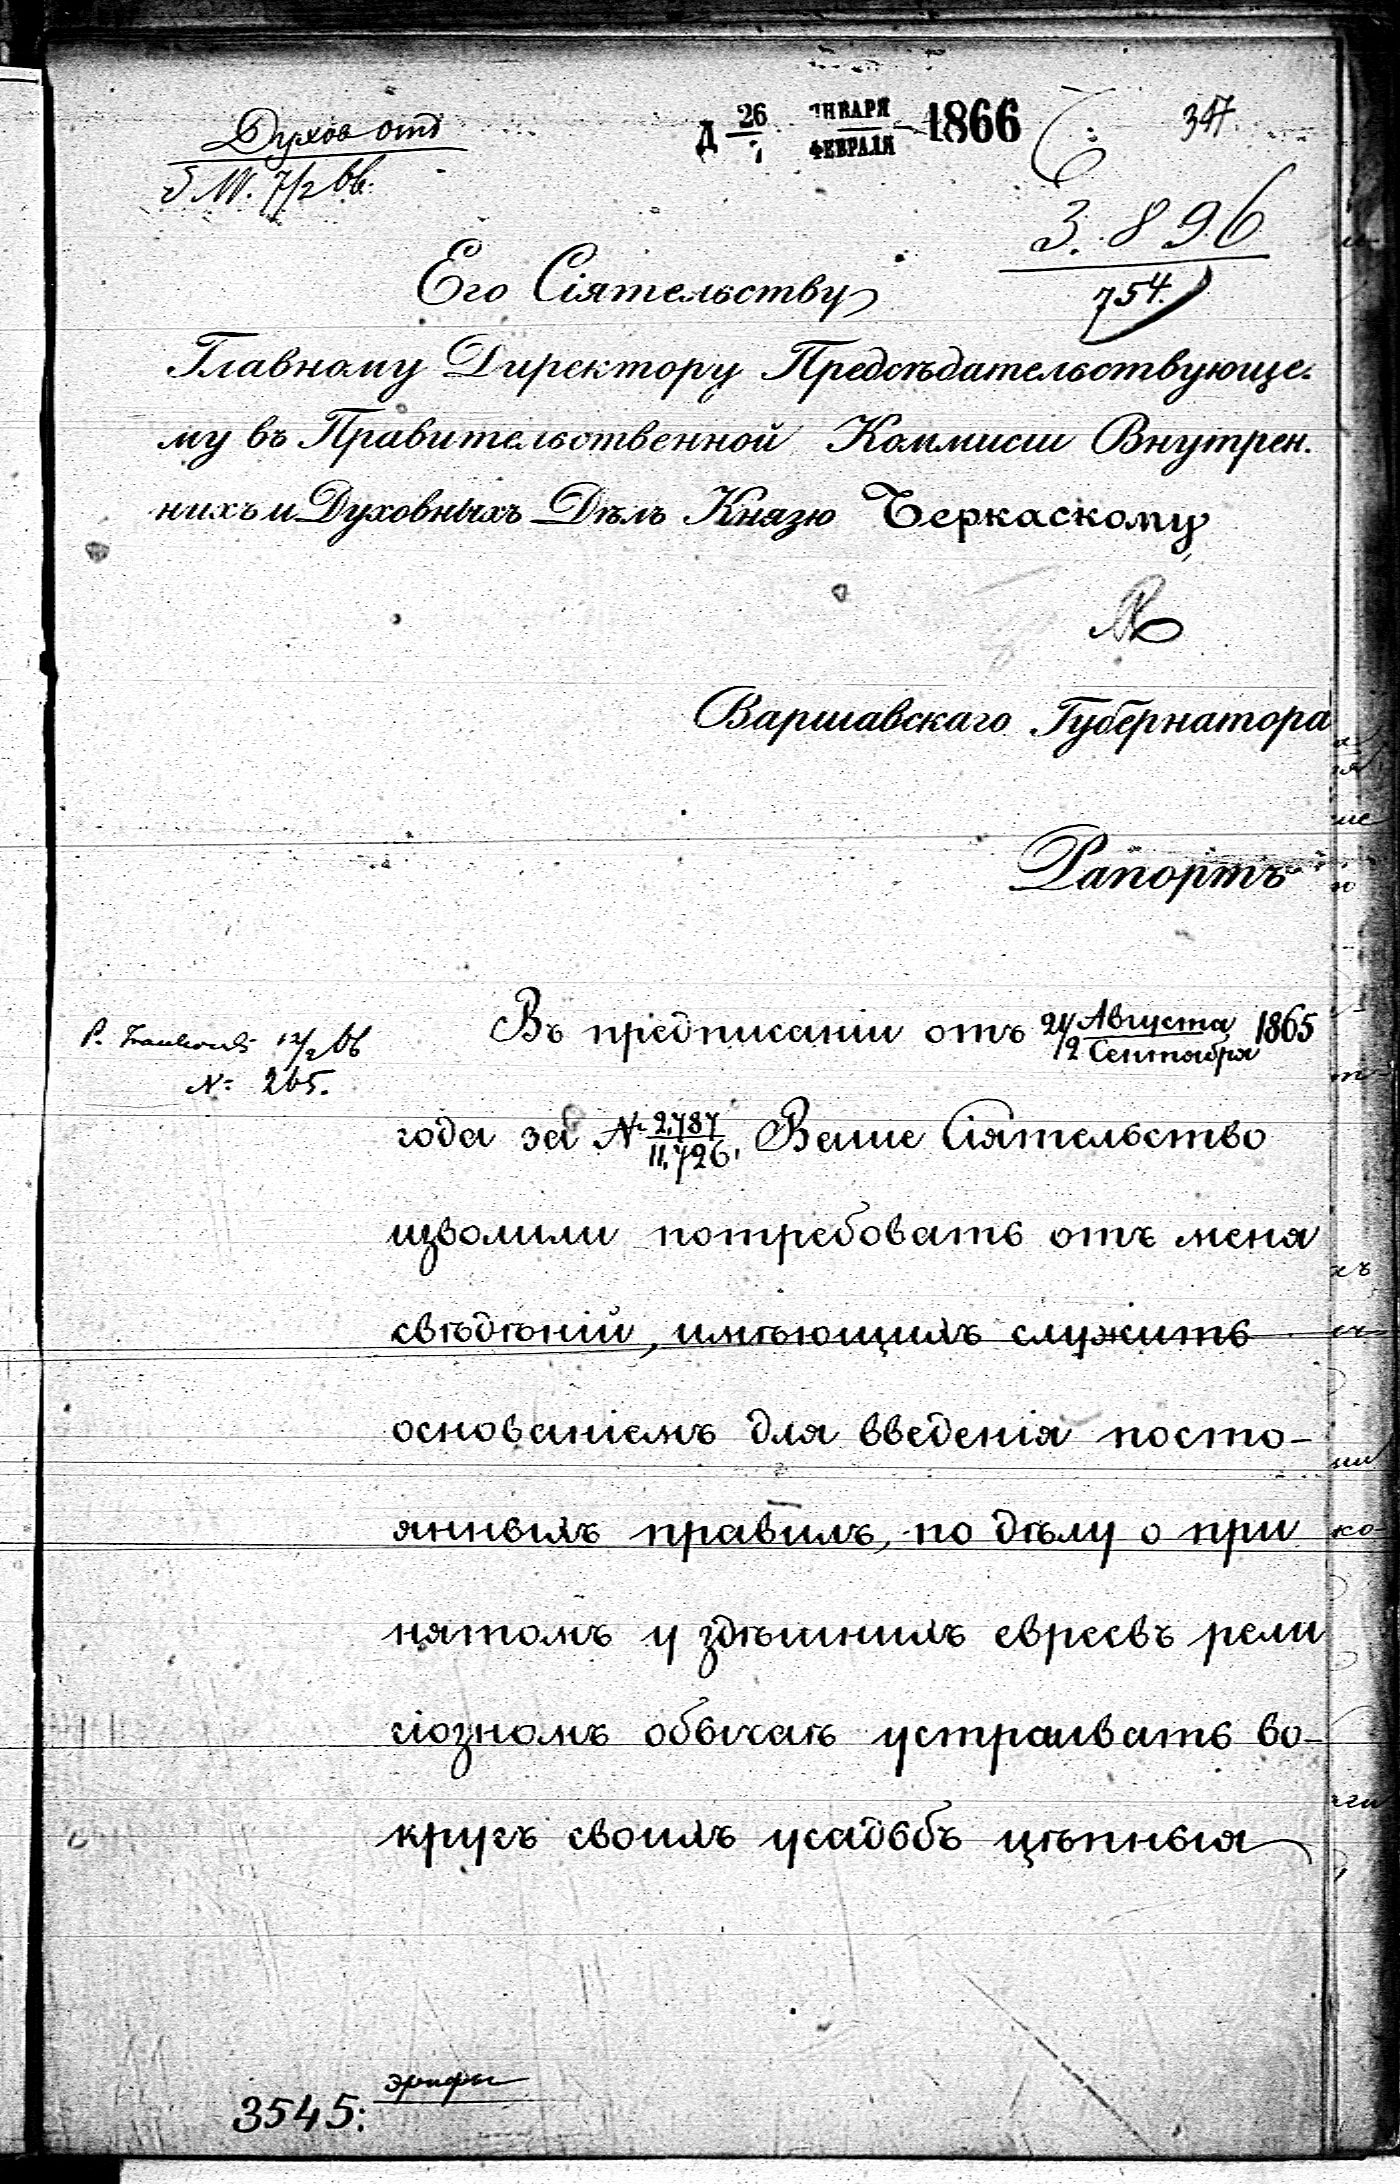 Духов отд
Д 26/7 ЯНВАРЯ/ФЕВРАЛЯ 1866
347
7/2 66.
3.896
754.
Его Сіятельству
Главному Директору Предсѣдательствующе-
му въ Правительственной Коммисіи Внутрен-
нихъ и Духовныхъ Дѣлъ Князю Черкаскому
Варшавскаго Губернатора
Рапортъ
Въ предписаніи отъ 24 Августа/12 Сентября 1865
12/2 66
№ 265.
года за № 2.787/11.726, Ваше Сіятельство
изволили потребовать отъ меня
свѣдѣній, имѣющихъ служить
основаніемъ для введенія посто-
янныхъ правилъ, по дѣлу о при
нятомъ у здѣшнихъ евреевъ рели
гіозномъ обычаѣ устраивать во-
кругъ своихъ усадьбъ цѣпныя
эрифы
3545: